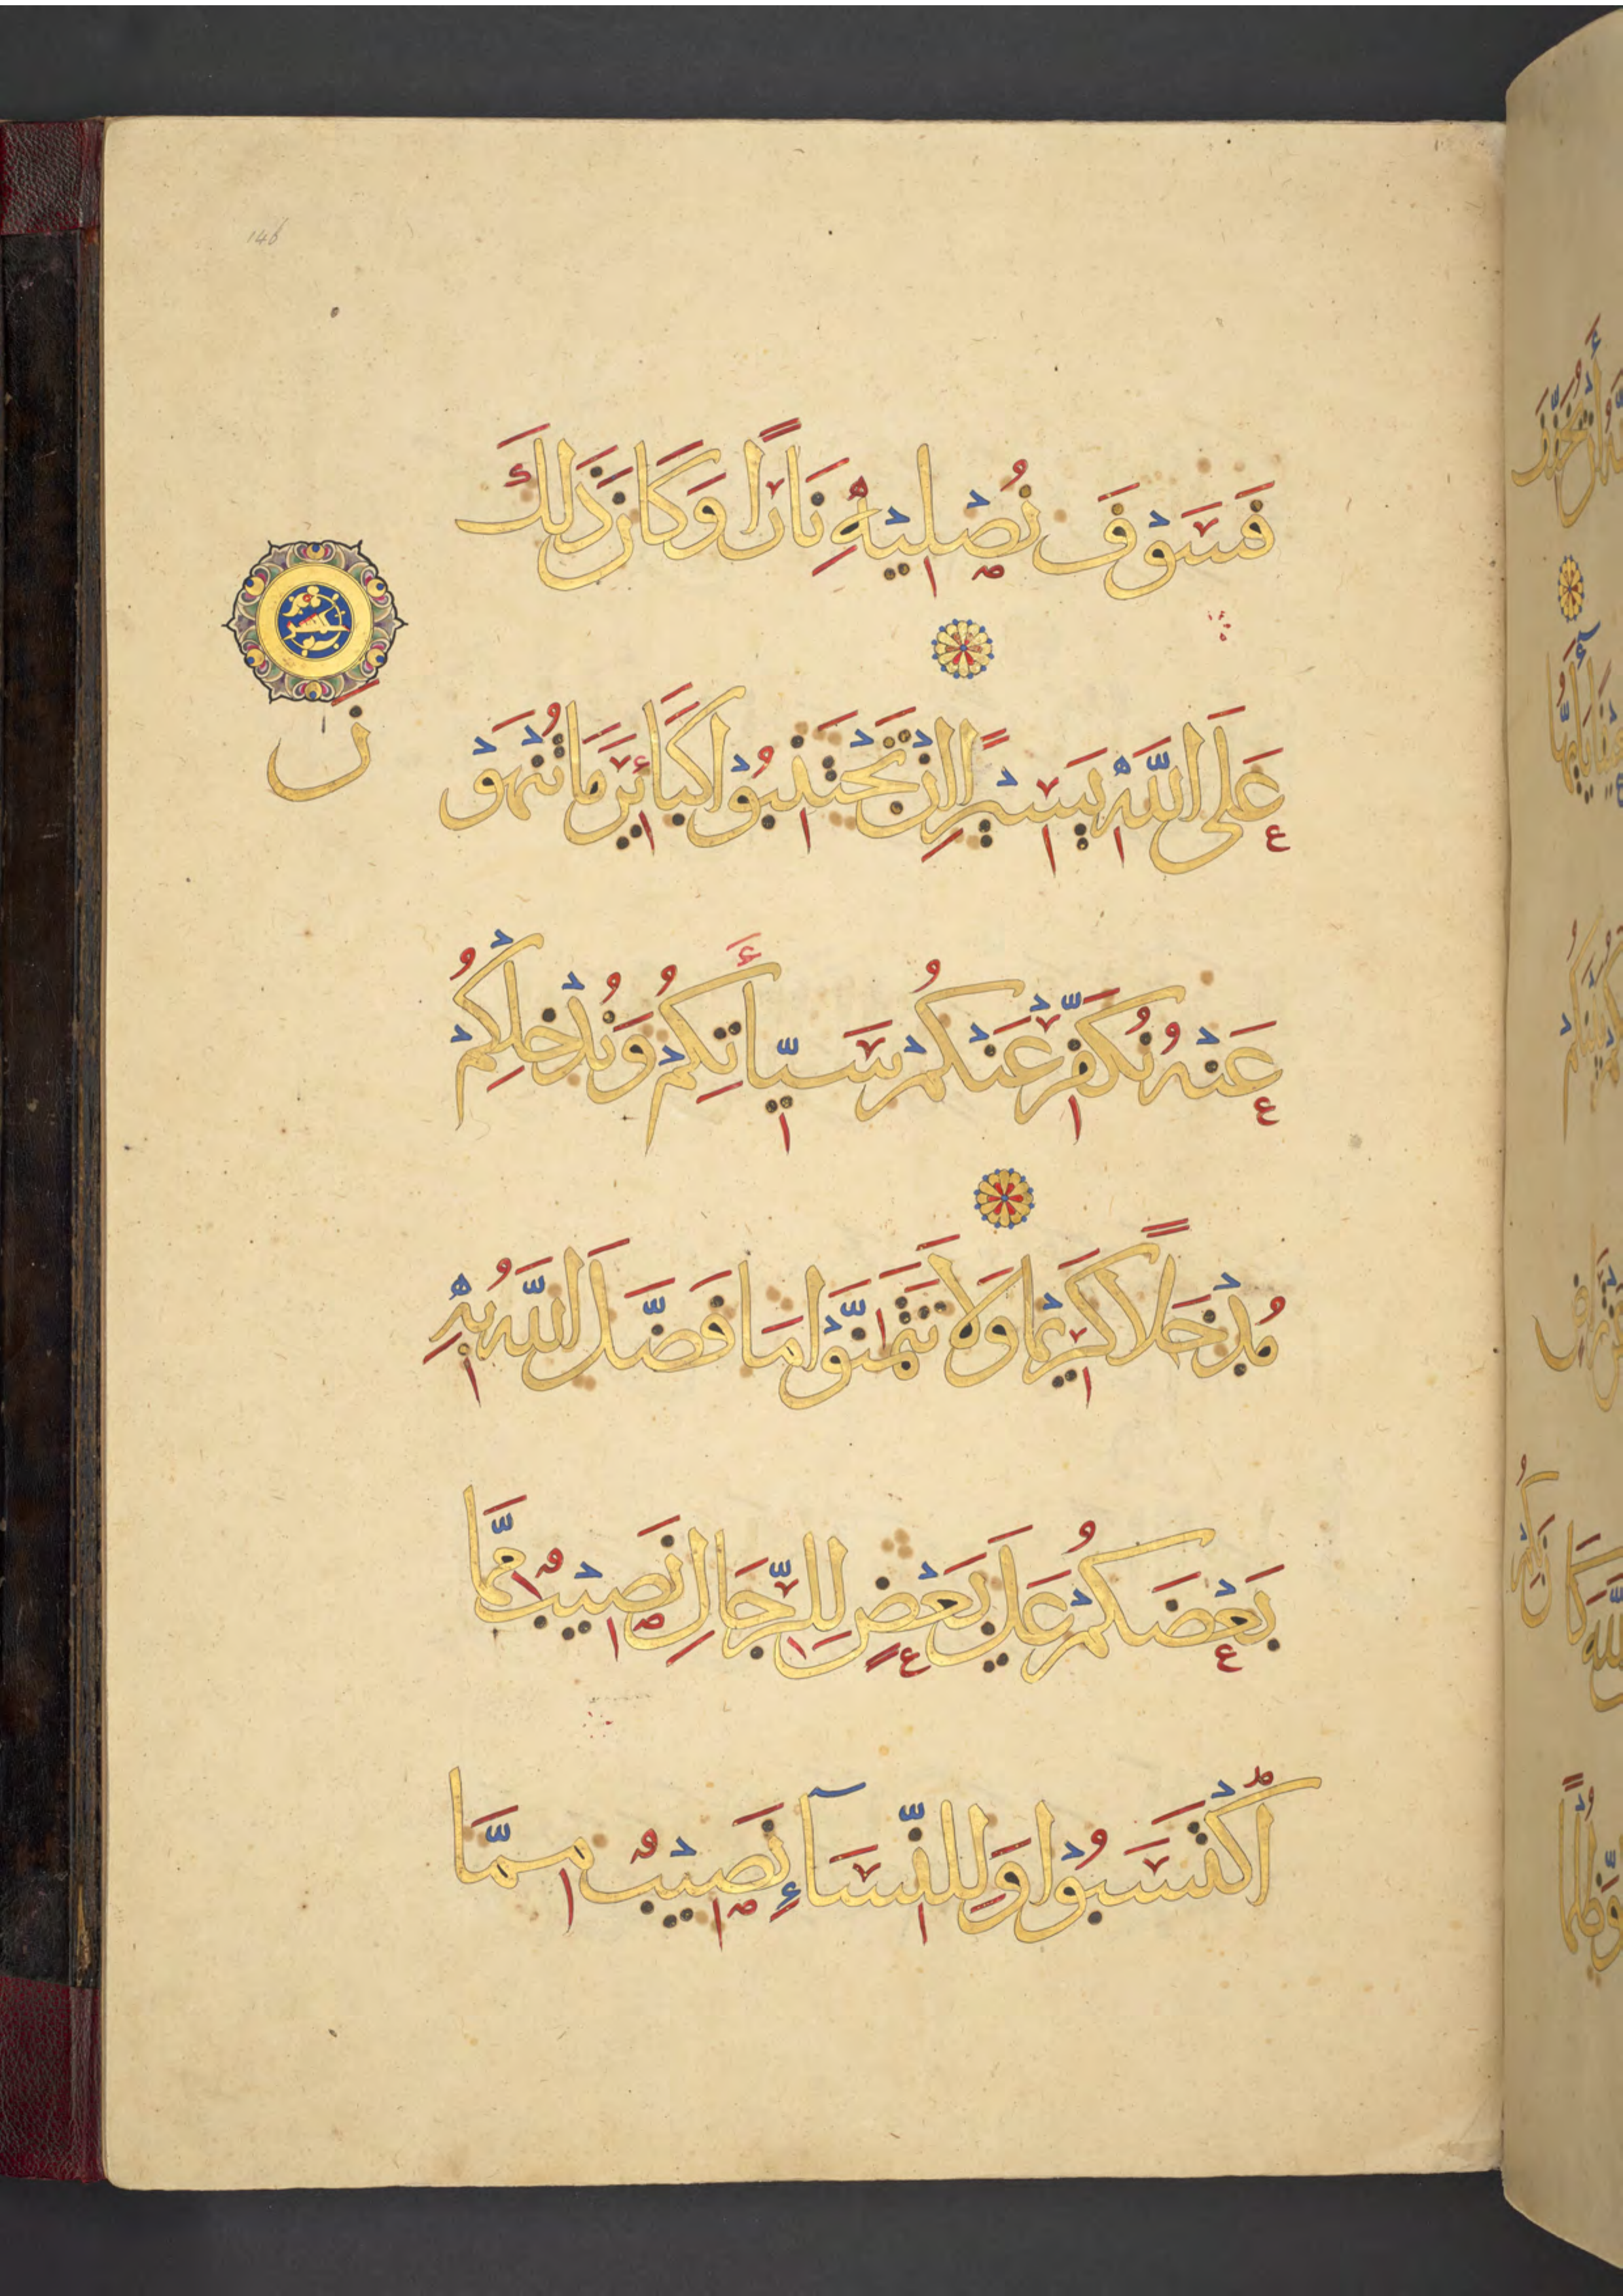 146
فَسَوْفَ نُصْلِيْهِ نَارًا وَكَانَ ذَلِكَ
عَلَى اللَّهِ يَسِيْرًا اِنْ تَجْتَنِبُوْا كَبَائِرَ مَا تُنْهَوْ
نَ
عَنْهُ نُكَفِّرْ عَنْكُمْ سَيِّأَتِكُمْ وَنُدْخِلْكُمْ
مُدْخَلًا كَرِيْمًا وَلَا تَتَمَنَّوْا مَا فَضَّلَ اللَّهُ بِهِ
بَعْضَكُمْ عَلَى بَعْضٍ لِلرِّجَالِ نَصِيْبٌ مِمَّا
اكْتَسَبُوْا وَلِلنِّسَآءِ نَصِيْبٌ مِمَّا